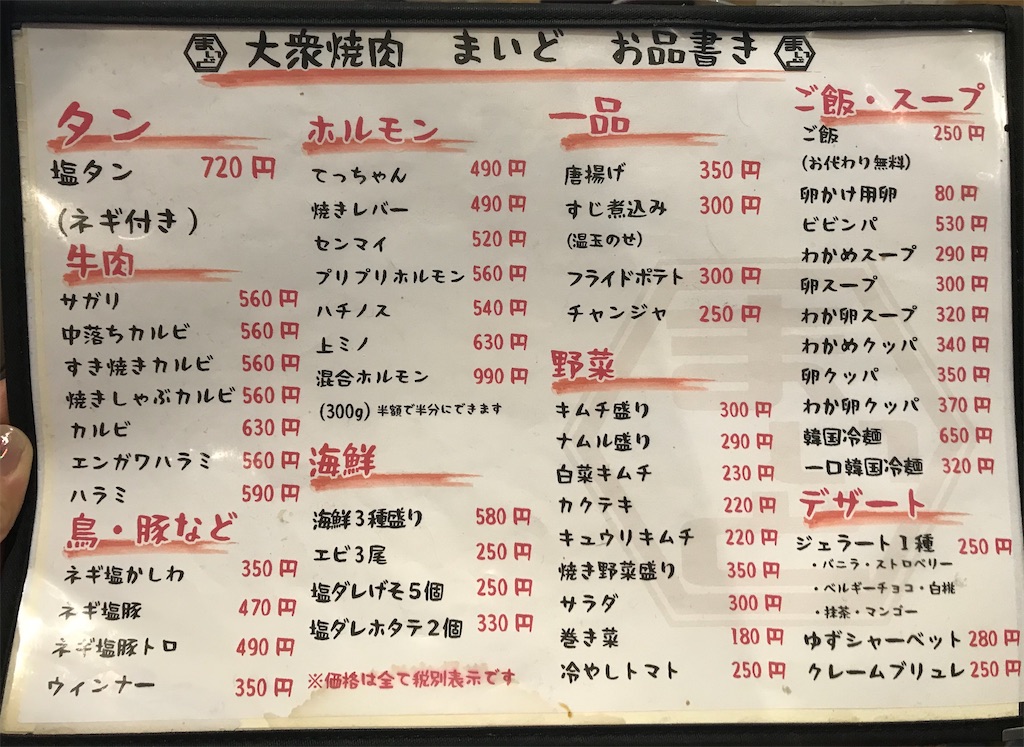 大衆焼肉 まいど お品書き
タン
塩タン 720円
(ネギ付き)
牛肉
サガリ 560円
中落ちカルビ 560円
すき焼きカルビ 560円
焼きしゃぶカルビ 560円
カルビ 630円
エンガワハラミ 560円
ハラミ 590円
鳥・豚など
ネギ塩かしわ 350円
ネギ塩豚 470円
ネギ塩豚トロ 490円
ウィンナー 350円
ホルモン
てっちゃん 490円
焼きレバー 490円
センマイ 520円
プリプリホルモン 560円
ハチノス 540円
上ミノ 630円
混合ホルモン 990円
(300g) 半額で半分にできます
海鮮
海鮮3種盛り 580円
エビ3尾 250円
塩ダレげそ5個 250円
塩ダレホタテ2個 330円
※価格は全て税別表示です
一品
唐揚げ 350円
すじ煮込み 300円
(温玉のせ)
フライドポテト 300円
チャンジャ 250円
野菜
キムチ盛り 300円
ナムル盛り 290円
白菜キムチ 230円
カクテキ 220円
キュウリキムチ 220円
焼き野菜盛り 350円
サラダ 300円
巻き菜 180円
冷やしトマト 250円
ご飯・スープ
ご飯 250円
(お代わり無料)
卵かけ用卵 80円
ビビンパ 530円
わかめスープ 290円
卵スープ 300円
わか卵スープ 320円
わかめクッパ 340円
卵クッパ 350円
わか卵クッパ 370円
韓国冷麺 650円
一口韓国冷麺 320円
デザート
ジェラート1種 250円
・バニラ・ストロベリー
・ベルギーチョコ・白桃
・抹茶・マンゴー
ゆずシャーベット 280円
クレームブリュレ 250円